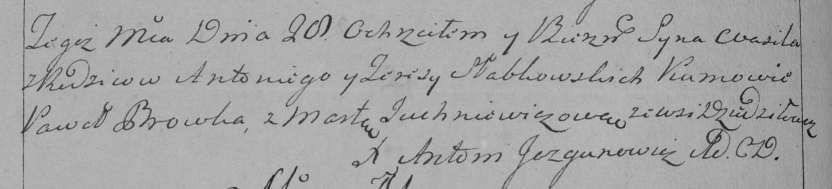 Tegoż Mca Dnia 28. Ochrzciłem y Bierzm Syna Wasila
z Rodzicow Antoniego y Teresy Nabkowskich Kumowie
Paweł Browka, z Martą Juchniewiczową ze wsi Dziedziłowicz
X Antoni Jozgunowicz